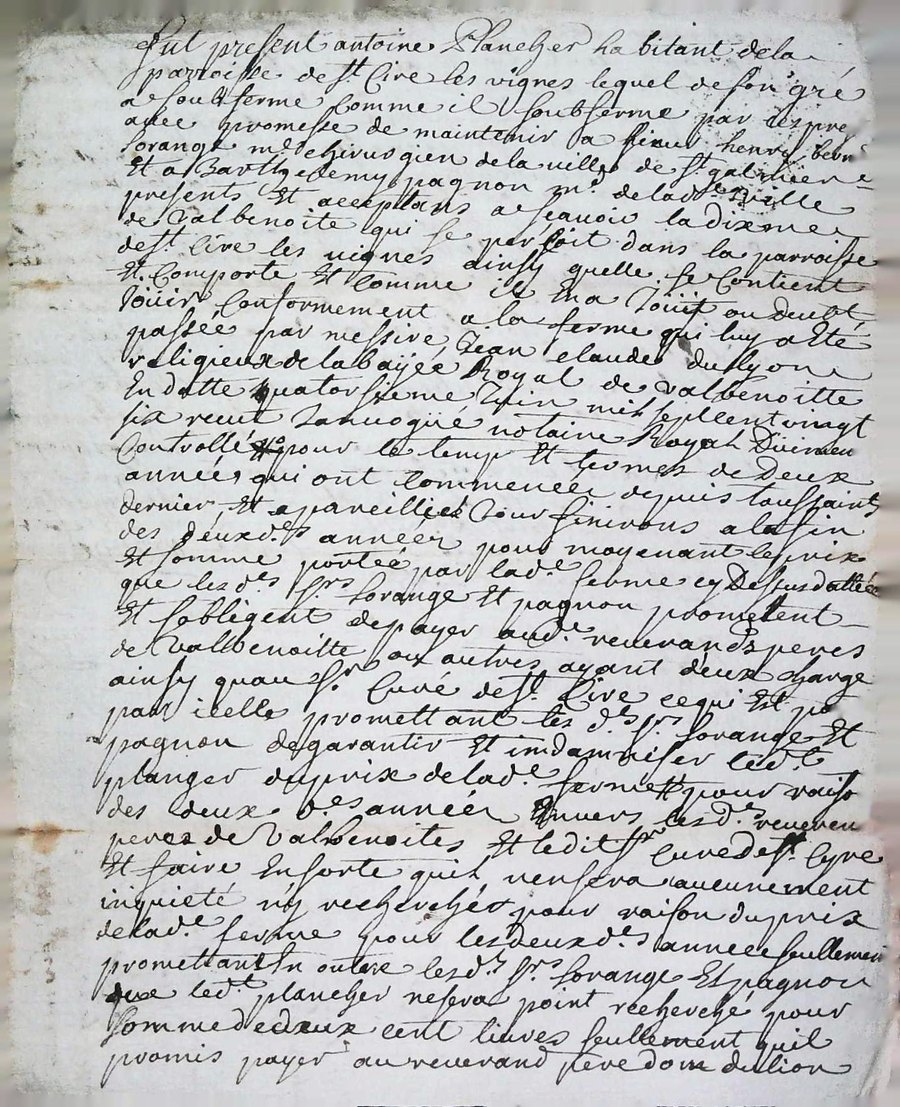 fut present antoine Plancher habitant de la
parroisse de st Cire les vignes lequel de son gré
a soubferme comme il soubferme par ces pre
avec promesse de maintenir a sieur henry
Lorange me chirurgien de la ville de st galmier
Et a Barthelemy pagnon md de lade ville
presents Et acceptans a scavoir la dixme
de Valbenoite qui se persoit dans la parroisse
de st Cire les vignes ainsy quelle se Contient
Et Comporte Et comme il En a Joüit ou deubt
Joüir Conformement a la ferme qui luy a Eté
passée par messire Jean claude du lyon
religieux de labayée Royal de Valbenoitte
En datte quatorsieme Juin mil sept Cent vingt
six receut notaire Royal
Controllé pour le temp Et termes de Deux
années qui ont commencée depuis toussaint
dernier Et a pareillie Jour finirons a la fin
des deux des années pour moyenant le prix
Et somme portée par lade ferme cy Dessus dattée
que les ds srs Lorange Et pagnon promettent
Et sobligent de payer aud reverands peres
de Valbenoitte ou autres ayant deux charge
ainsy quau sr Curé de st Cire ce qui Est po
par icelle promettant les ds srs Lorange Et
pagnon de garantir Et indamniser ledt
planger du prix de lade ferme pour raiso
des deux des année Envers les ds reveren
peres de Valbenoites Et ledit sr Curé De st Cyre
Et faire En sorte quil nen sera aucunement
inquieté ny recherché pour raison du prix
de lade ferme pour les deux des annee seullemen
promettant En outre les ds srs Lorange Et pagnon
que ledt plancher nesera point recherché pour
somme de deux cent livres seullement quil
promis payer au reverand pere dom dulion